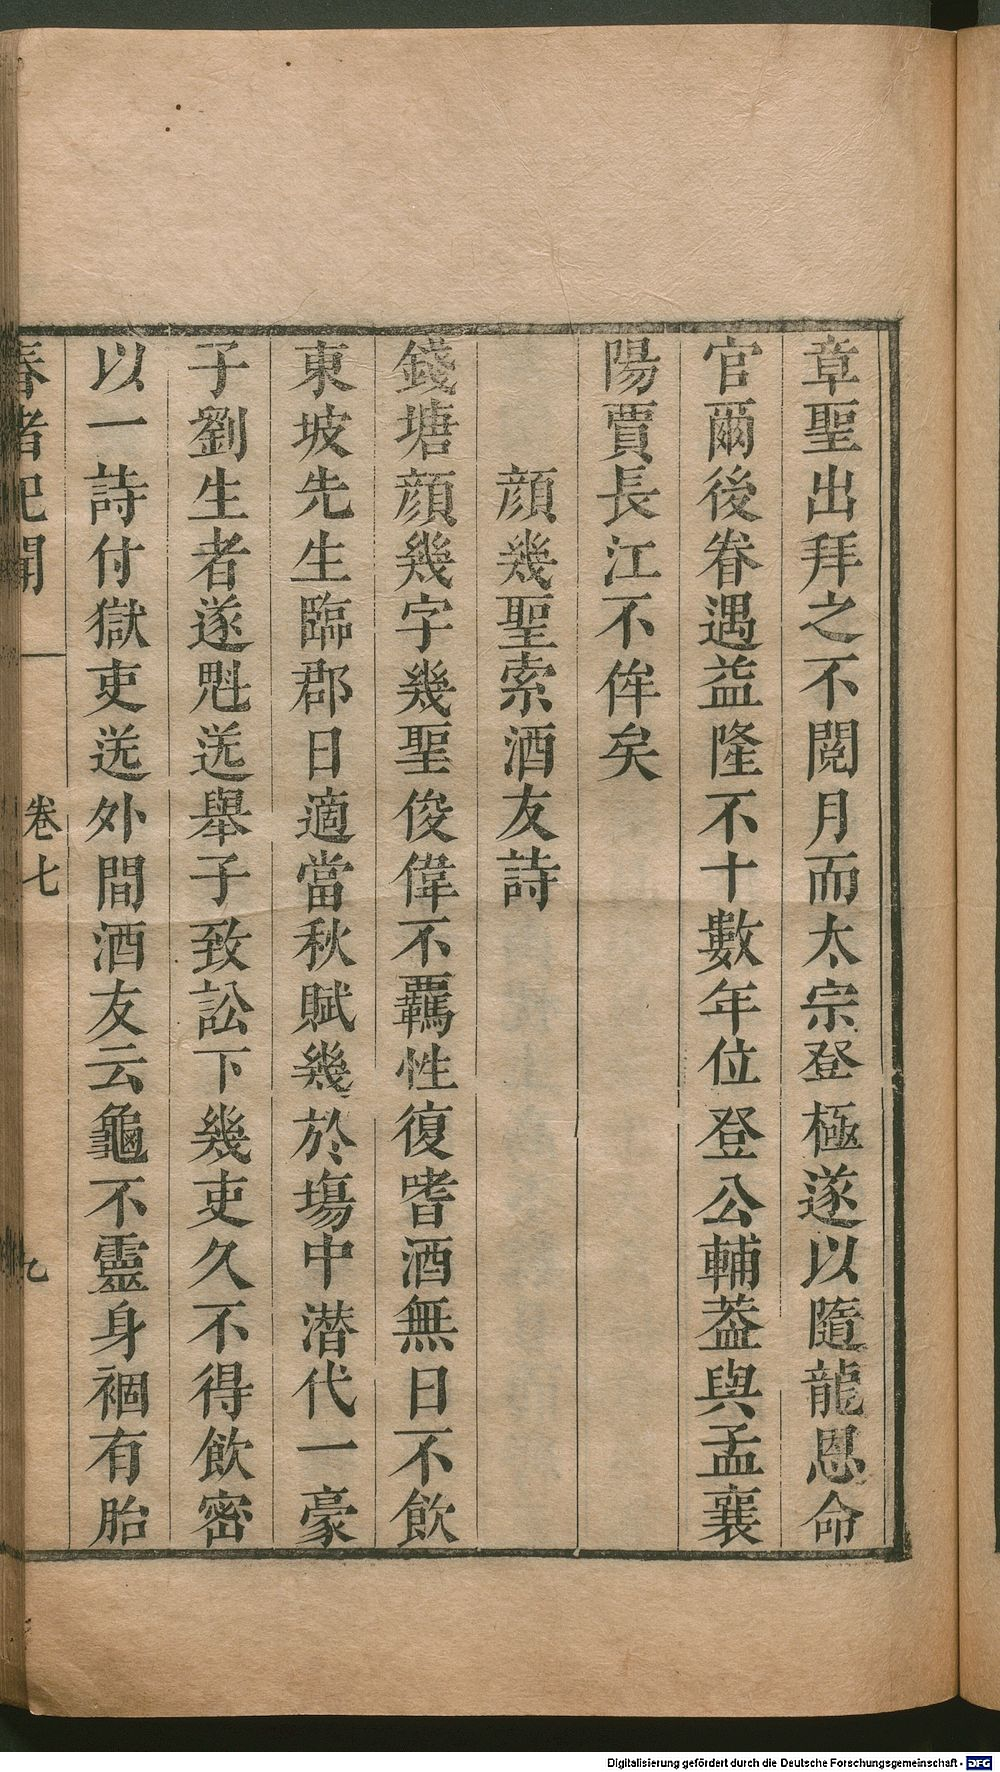 章聖出拜之不閱月而太宗登極遂以隨龍恩命
官爾後眷遇益隆不十數年位登公輔葢與孟襄
陽賈長江不侔矣
顔幾聖索酒友詩
錢塘顔幾字幾聖俊偉不羈性復嗜酒無日不飲
東坡先生臨郡日適當秋賦幾於塲中潜代一豪
子劉生者遂魁送舉子致訟下幾吏久不得飲密
以一詩付獄吏送外間酒友云龜不靈身禍有胎
春渚紀聞
卷七
九
Digitalisierung gefördert durch die Deutsche Forschungsgemeinschaft - DFG